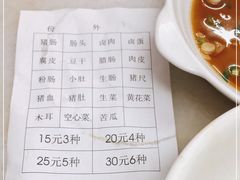 份 外
猪肠 肠头 卤肉 卤蛋
腐皮 豆干 腊肠 肉皮
粉肠 小肚 生肠 猪尺
猪血 猪肚 生菜 黄花菜
木耳 空心菜 苦瓜
15元3种 20元4种
25元5种 30元6种